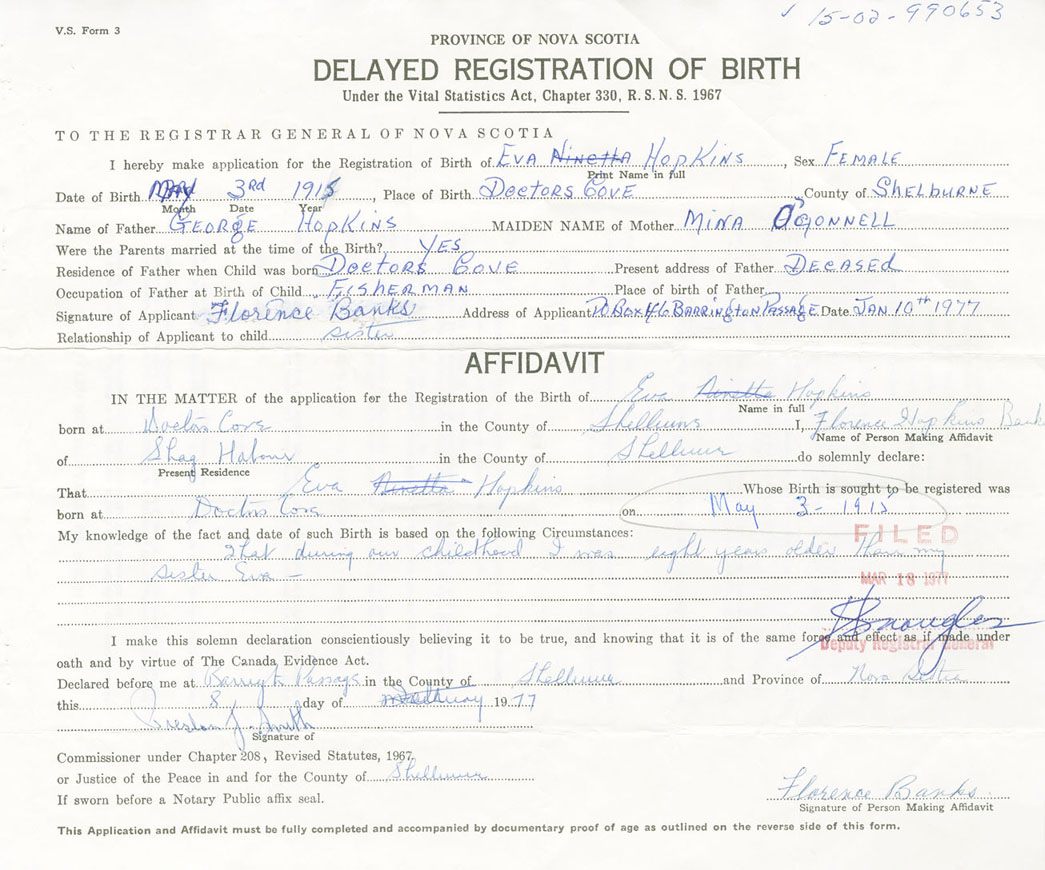 V.S. Form 3
✓ 15-02-990653
PROVINCE OF NOVA SCOTIA
DELAYED REGISTRATION OF BIRTH
Under the Vital Statistics Act, Chapter 330, R. S. N. S. 1967
TO THE REGISTRAR GENERAL OF NOVA SCOTIA
I hereby make application for the Registration of Birth of EVA NINETTA HOPKINS, Sex FEMALE
Print Name in full
Date of Birth MAY 3rd 1915, Place of Birth DOCTORS COVE, County of SHELBURNE
Month Date Year
Name of Father GEORGE HOPKINS MAIDEN NAME of Mother MINA O'CONNELL
Were the Parents married at the time of the Birth? YES
Residence of Father when Child was born DOCTORS COVE Present address of Father DECASED
Occupation of Father at Birth of Child FISHERMAN Place of birth of Father
Signature of Applicant Florence Banks Address of Applicant P.O. BOX 46 BARRINGTON PASSAGE Date JAN 10th 1977
Relationship of Applicant to child sister
AFFIDAVIT
IN THE MATTER of the application for the Registration of the Birth of Eva Ninetta Hopkins
Name in full
born at Doctors Cove in the County of Shelburne I, Florence Hopkins Banks
Name of Person Making Affidavit
of Shag Harbour in the County of Shelburne do solemnly declare:
Present Residence
That Eva Ninetta Hopkins Whose Birth is sought to be registered was
born at Doctors Cove on May 3 - 1915
My knowledge of the fact and date of such Birth is based on the following Circumstances:
FILED
That during our childhood I was eight years older than my
sister Eva —
MAR 18 1977
I make this solemn declaration conscientiously believing it to be true, and knowing that it is of the same force and effect as if made under
Deputy Registrar General
oath and by virtue of The Canada Evidence Act.
Declared before me at Barrington Passage in the County of Shelburne and Province of Nova Scotia
this 8 day of 1977
Preston J. Smith
Signature of
Commissioner under Chapter 208, Revised Statutes, 1967,
or Justice of the Peace in and for the County of Shelburne
If sworn before a Notary Public affix seal.
Florence Banks
Signature of Person Making Affidavit
This Application and Affidavit must be fully completed and accompanied by documentary proof of age as outlined on the reverse side of this form.